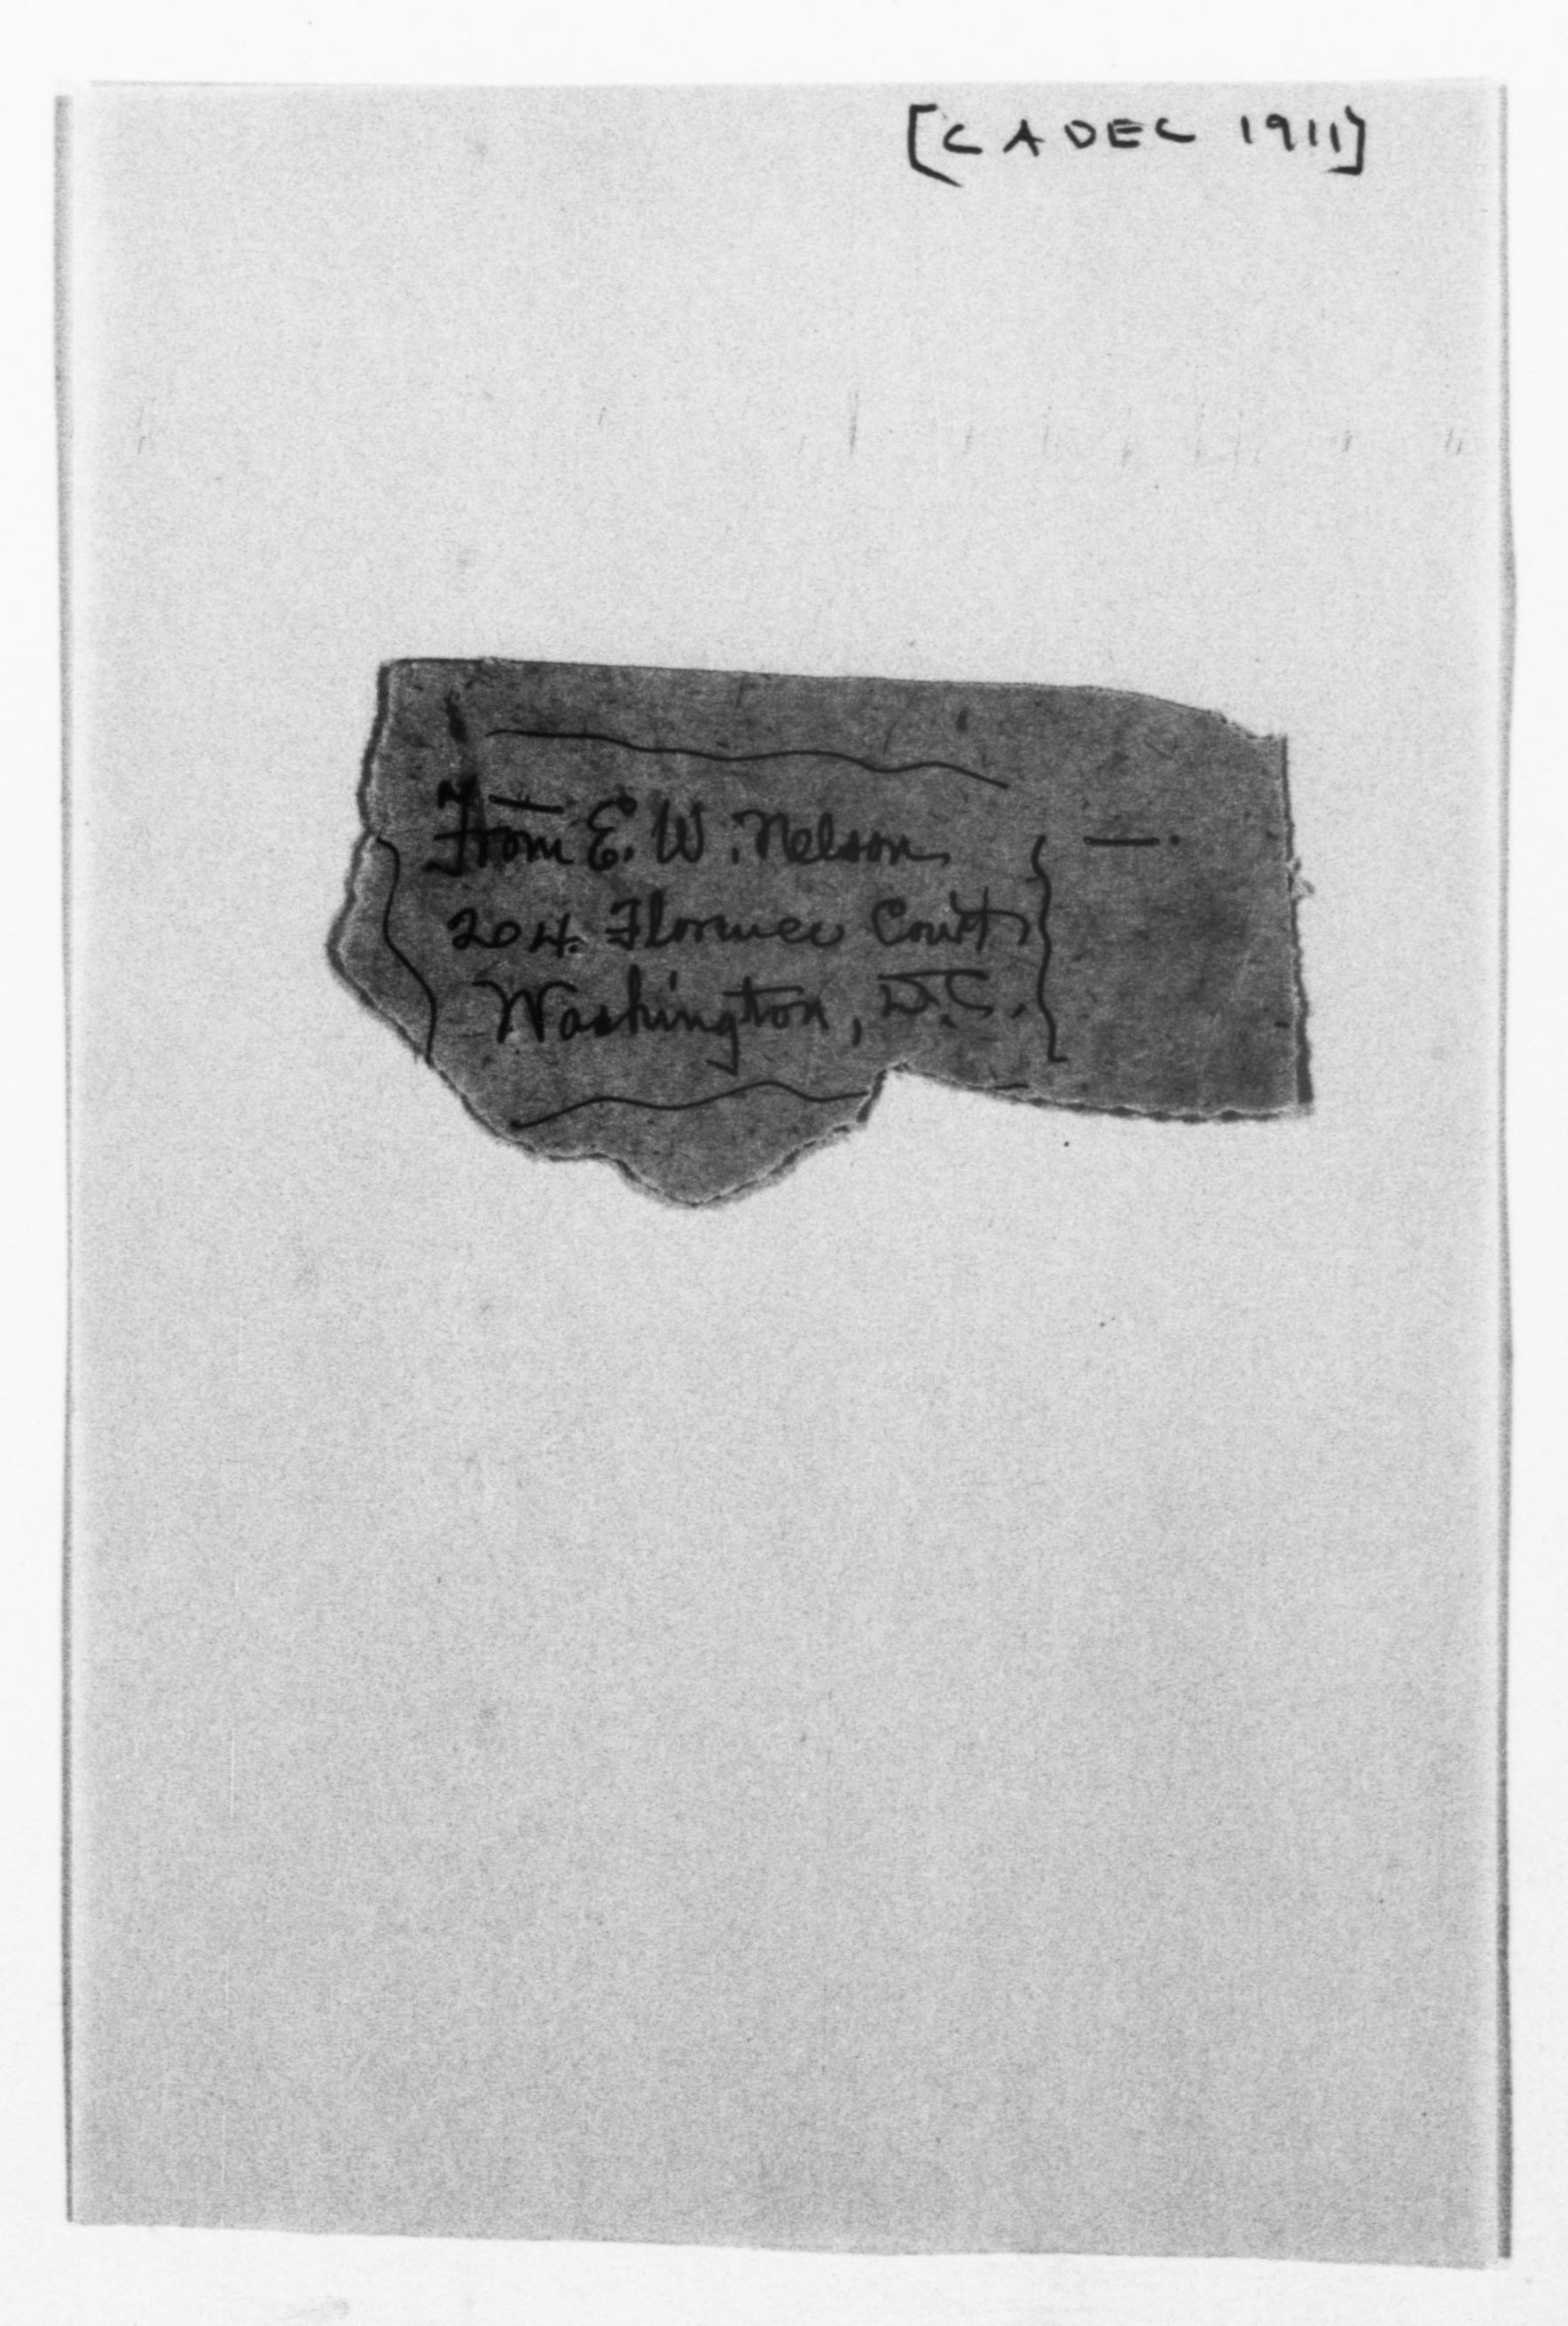 [CA DEC 1911]
From E. W. Nelson
204 Florence Court
Washington, D.C.